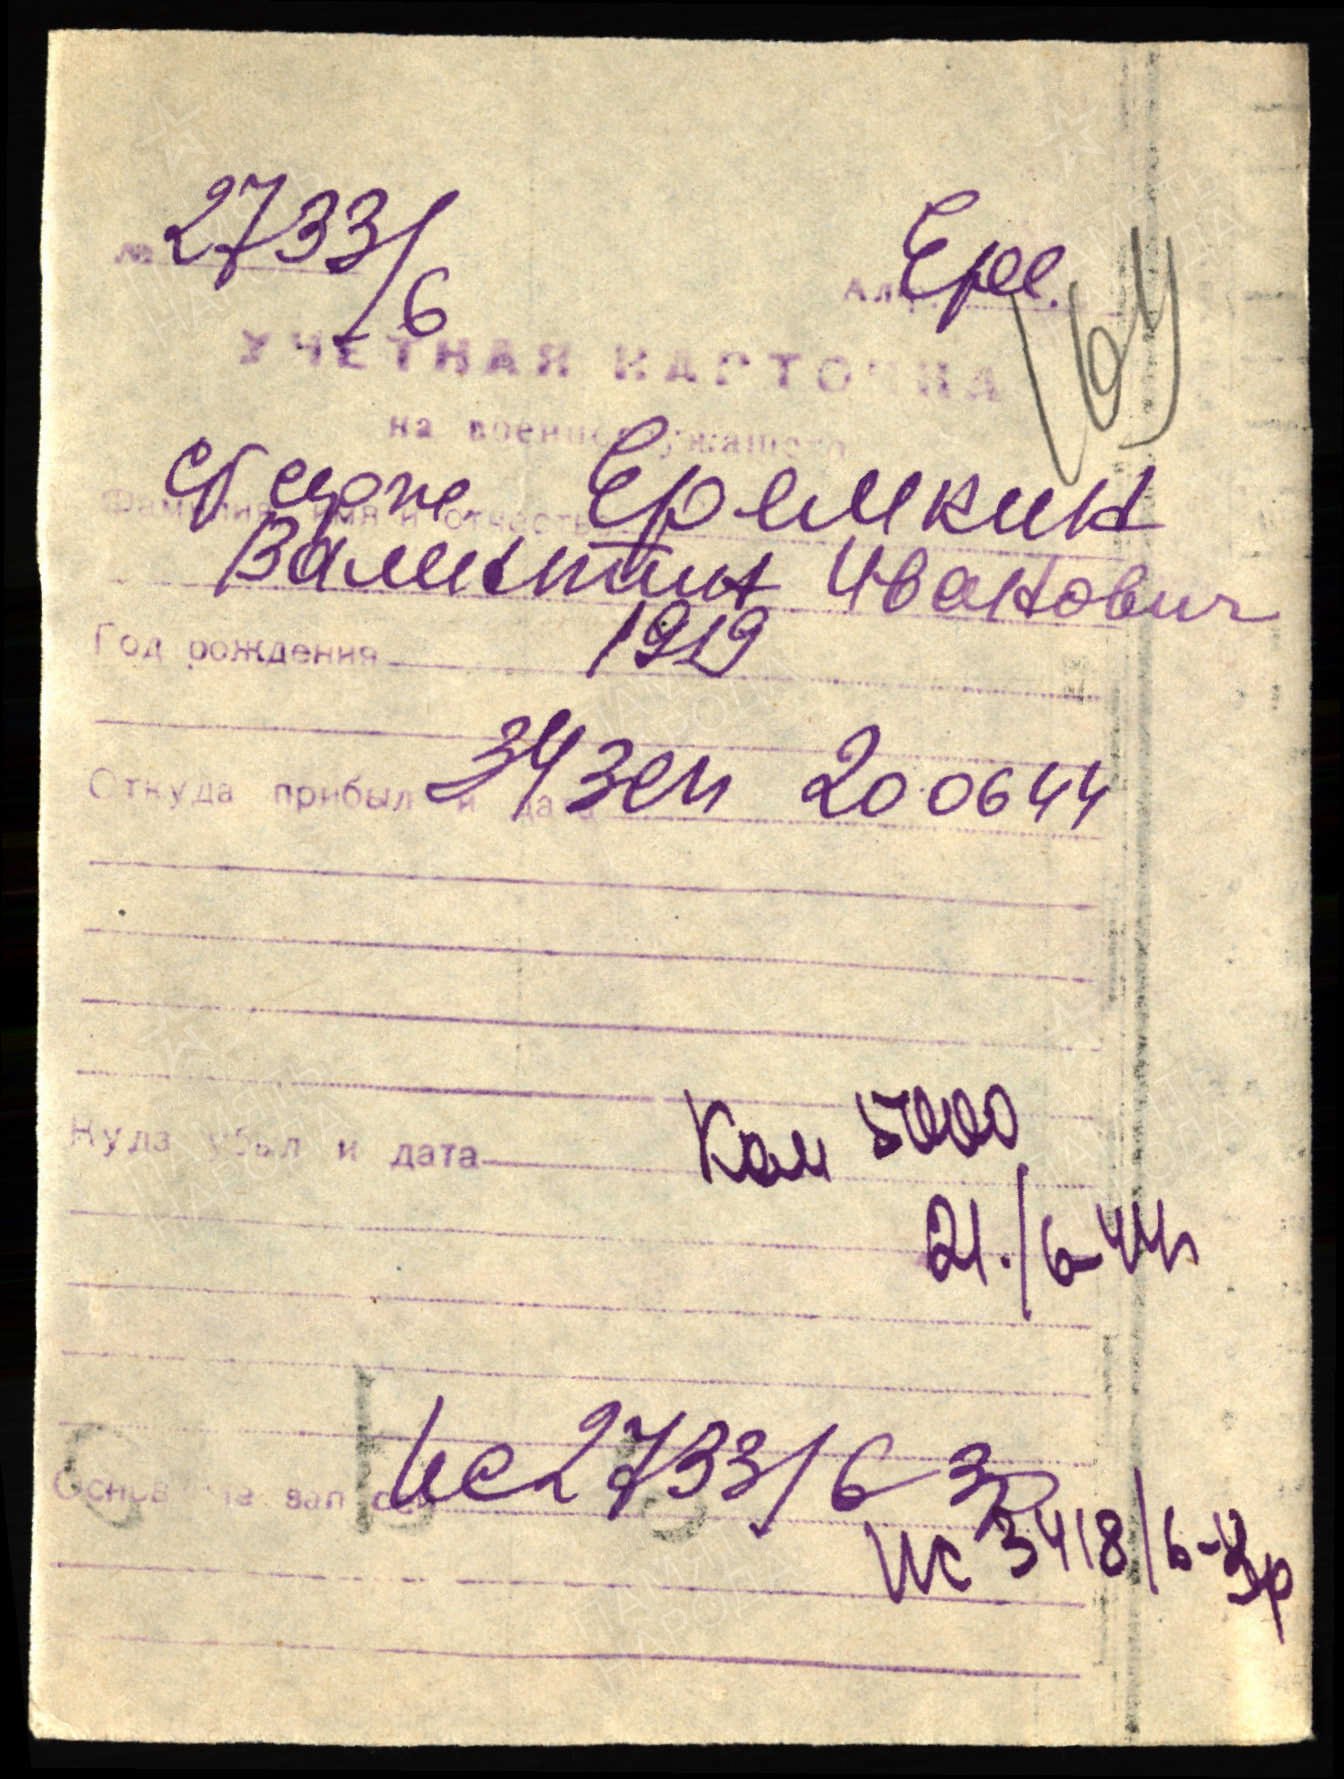 № 2733/6
Алф. Ере.
УЧЕТНАЯ КАРТОЧКА
на военнослужащего
Фамилия имя и отчество Еремкин
Валентин Иванович
Год рождения 1919
Откуда прибыл и дата 34 зсп 200644
Куда убыл и дата Ком 5000
21./6-44г
Основание записи ис 2733/6 Зр
ис 3418/6-Зр
ПАМЯТЬ
НАРОДА